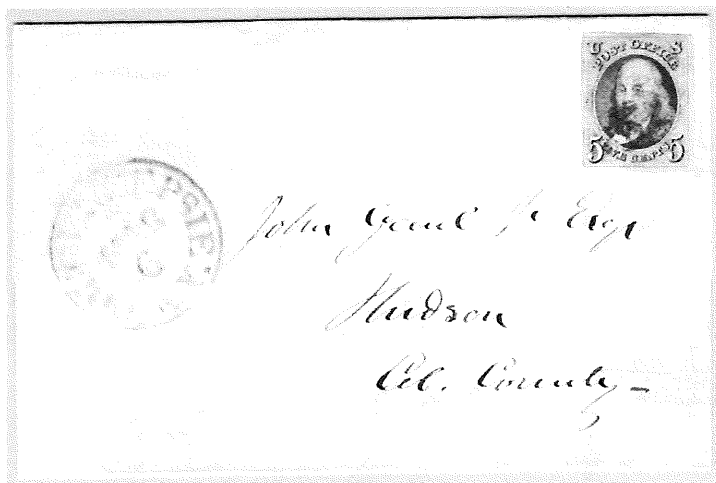 U S
POST OFFICE
5 FIVE CENTS 5
John Gaul Jr Esqr
Hudson
Col. County